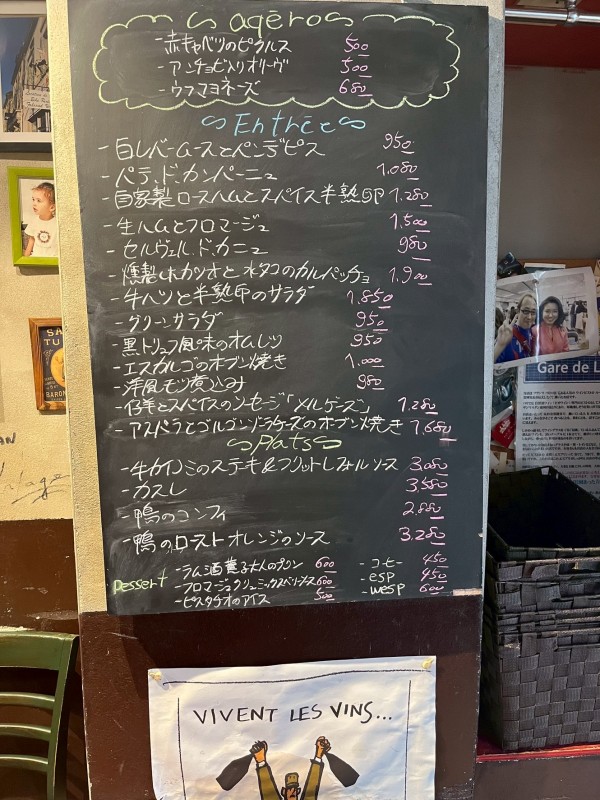 apéro
-赤キャベツのピクルス 500
-アンチョビ入りオリーヴ 500
-ウフマヨネーズ 680
Entrée
-白レバームースとペンデピス 950
-パテ.ド.カンパーニュ 1.080
-自家製ロースハムとスパイス半熟卵 1.280
-生ハムとフロマージュ 1.500
-セルヴェル.ド.カニュ 980
-燻製したカツオと水タコのカルパッチョ 1.900
-牛ハツと半熟卵のサラダ 1.850
-グリーンサラダ 950
-黒トリュフ風味のオムレツ 950
-エスカルゴのオーブン焼き 1.000
-洋風モツ煮込み 980
-仔羊とスパイスのソーセージ「メルゲーズ」 1.280
-アスパラとゴルゴンゾーラチーズのオーブン焼き 1.680
Plats
-牛カイノミのステーキ&フリット 3.080
-カスレ 3.580
-鴨のコンフィ 2.880
-鴨のロースト オレンジのソース 3.280
Dessert
-ラム酒薫る大人のプリン 600
-フロマージュクリュ ミックスベリーソース 600
-ピスタチオのアイス 500
-コーヒー 450
-esp 450
-wesp 600
Gare de L
VIVENT LES VINS...